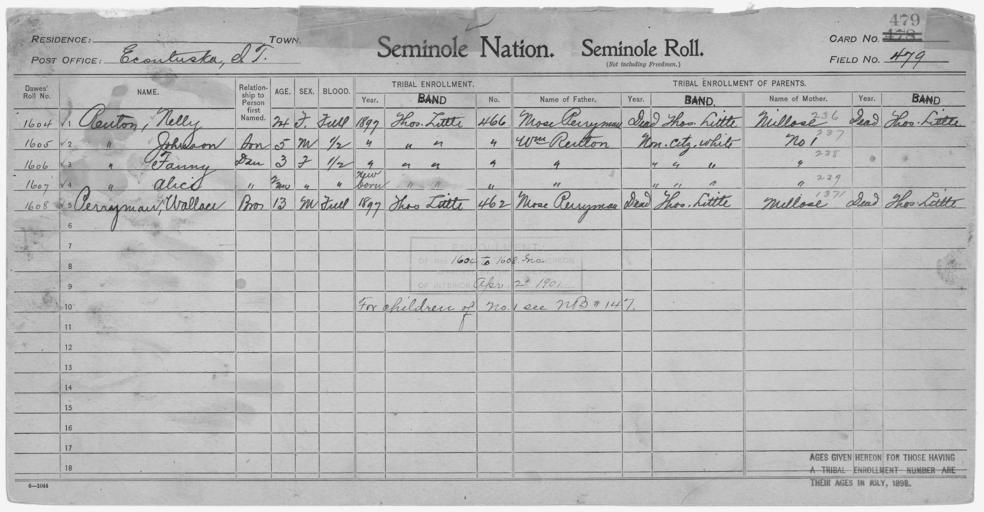 479
RESIDENCE: TOWN. Seminole Nation. Seminole Roll. CARD NO. 478
POST OFFICE: Econtuska, I.T. (Not including Freedmen.) FIELD NO. 479
Dawes' Roll No. NAME. Relationship to Person first Named. AGE. SEX. BLOOD. TRIBAL ENROLLMENT. TRIBAL ENROLLMENT OF PARENTS.
Year. BAND No. Name of Father. Year. BAND. Name of Mother. Year. BAND
1604 1 Renton, Nelly 24 F. Full 1897 Thos. Little 466 Mose Perryman Dead Thos. Little Millose 236 Dead Thos. Little
1605 2 " Johnson Son 5 M 1/2 " " " " Wm Renton Non. city. white No 1 237
1606 3 " Fanny Dau 3 F 1/2 " " " " " " " " " 238
1607 4 " Alice " 2/mo " " New born " " " " " " " 239
1608 5 Perryman, Wallace Bros 13 M Full 1897 Thos Little 462 Mose Perryman Dead Thos. Little Millose 1371 Dead Thos. Little
6
7 ENROLLMENT
8 1604 to 1608 Inc.
9 OF INTERIOR Apr. 2d 1901
10 For children of No. 1 see NB # 147.
11
12
13
14
15
16
17
18
AGES GIVEN HEREON FOR THOSE HAVING
A TRIBAL ENROLLMENT NUMBER ARE
THEIR AGES IN JULY, 1898.
6-1044